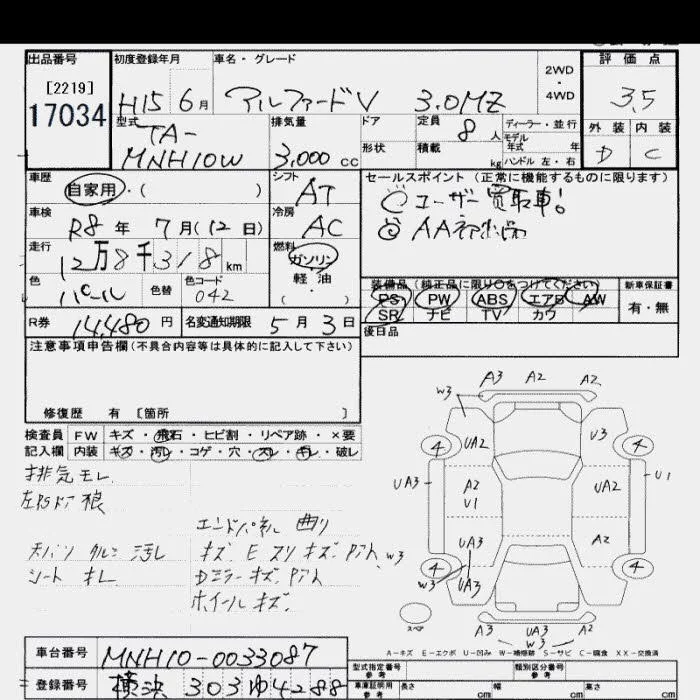 出品番号 初度登録年月 車名・グレード 2WD・4WD 評価点
[2219]
17034
H15 6月 アルファードV 3.0MZ 3.5
型式 排気量 ドア 定員 8人 ディーラー・並行 外装 内装
TA-
MNH10W 3,000cc 形状 積載 kg モデル年式 年 ハンドル 左・右 D C
車歴 シフト セールスポイント (正常に機能するものに限ります)
自家用・( ) AT ユーザー買取車!
車検 冷房
R8年 7月(12日) AC AA初出品
走行 燃料
12万8千318km ガソリン
軽油
・( )
装備品 (純正品に限り○をつけてください) 新車保証書
色 色替 色コード PS PW ABS エアB AW
パール 042 SR ナビ TV カワ 有・無
R券 14,480円 名変通知期限 5月3日 後日品
注意事項申告欄(不具合内容等は具体的に記入して下さい)
修復歴 有 [箇所 ]
検査員 FW キズ・飛石・ヒビ割・リペア跡・×要
記入欄 内装 キズ・汚レ・コゲ・穴・スレ・キレ・破レ
排気モレ
エンドパネル 曲り
シート キレ
Dミラーキズ
ホイールキズ
A3 A2 A2
W3
4 UA2 U3 4
UA3 A2 U1 UA2 U1
UA3 A2
W3
W3 4 UA3 4
スペア
A3 UA3 A2
W3
A-キズ E-エクボ U-凹み W-補修跡 S-サビ C-腐食 XX-交換済
車台番号 MNH10-0033087
型式指定番号 参考 類別区分番号 参考
登録番号 横浜 303 ゆ 4288
車庫証明用 参考 長さ cm 幅 cm 高さ cm